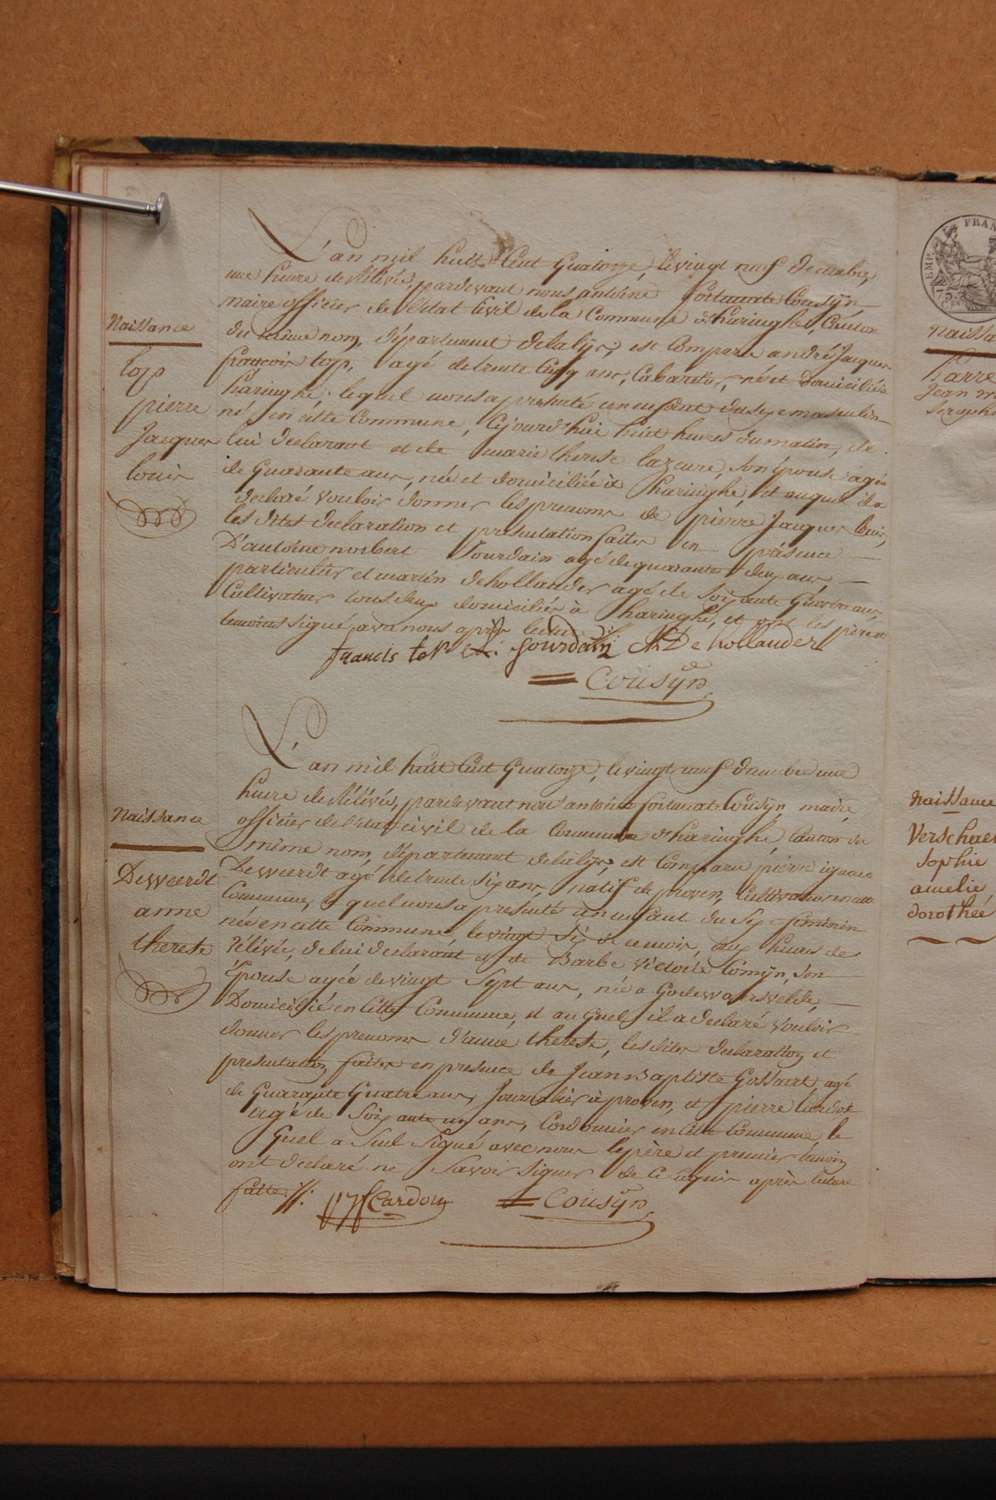 Naissance
top
pierre
Jacques
louis
L'an mil huit Cent Quatorze, le vingt neuf
une heure de Relévée, pardevant nous antoine Fortunat Cousÿn
maire officier de l'Etat Civil de la Commune d'haringhe, Canton
du même nom, département delalÿs, est Comparu andré Jacques
françois top, agé de trente Cinq ans, Cabaretier, né et domicilié à
haringhe, lequel nous a présenté un enfant du sexe masculin
né en cette Commune, Cejourd'hui huit heures du matin, de
lui declarant et de marie therese lazeure, son épouse agée
de Quarante ans, née et domiciliée à haringhe, et auquel il a
declaré vouloir donner les prenoms de pierre Jacques louis,
les dites declaration et presentation faites en présence
D'antoine norbert Jourdain agé de quarante deux ans,
particulier et martin dehollander agé de Soixante Quatre ans,
Cultivateur tous deux domiciliés à haringhe, et ont les père et
temoins signé avec nous après lecture
francis top Jourdain M De hollander
Cousÿn
Naissance
Deweerdt
anne
therese
L'an mil huit Cent Quatorze, le vingt neuf decembre une
heure de Rélévée, pardevant nous antoine fortunat Cousÿn, maire,
officier de l'etat civil de la Commune d'haringhe, Canton du
même nom, département delalÿs, est Comparu pierre ignace
Deweerdt agé de trente six ans, natif de proven, Cultivateur en cette
Commune, lequel nous a présenté un enfant du Sexe feminin
née en cette Commune, le vingt Six au soir, aux heures de
rélévée, de lui declarant et de Barbe Victoire Comÿn, son
Épouse agée de vingt Sept ans, née à Godewaersvelde,
Domiciliée en cette Commune, et auquel il a declaré vouloir
donner les prenoms d'anne therese, les dites declaration et
presentation faites en presence de Jean Baptiste Gossaert, agé
de Quarante Quatre ans, Journalier à proven, et pierre Cardot
agé de Soixante un ans, Cordonnier en cette Commune, le
Quel a Seul Signé avec nous le père et premier temoin
ont declaré ne Savoir Signer de Ce Requis après lecture
faite
Cardon Cousÿn
EMP. FRAN
Jean
Séraph
Naissance
Verschae
Sophie
amelie
dorothée